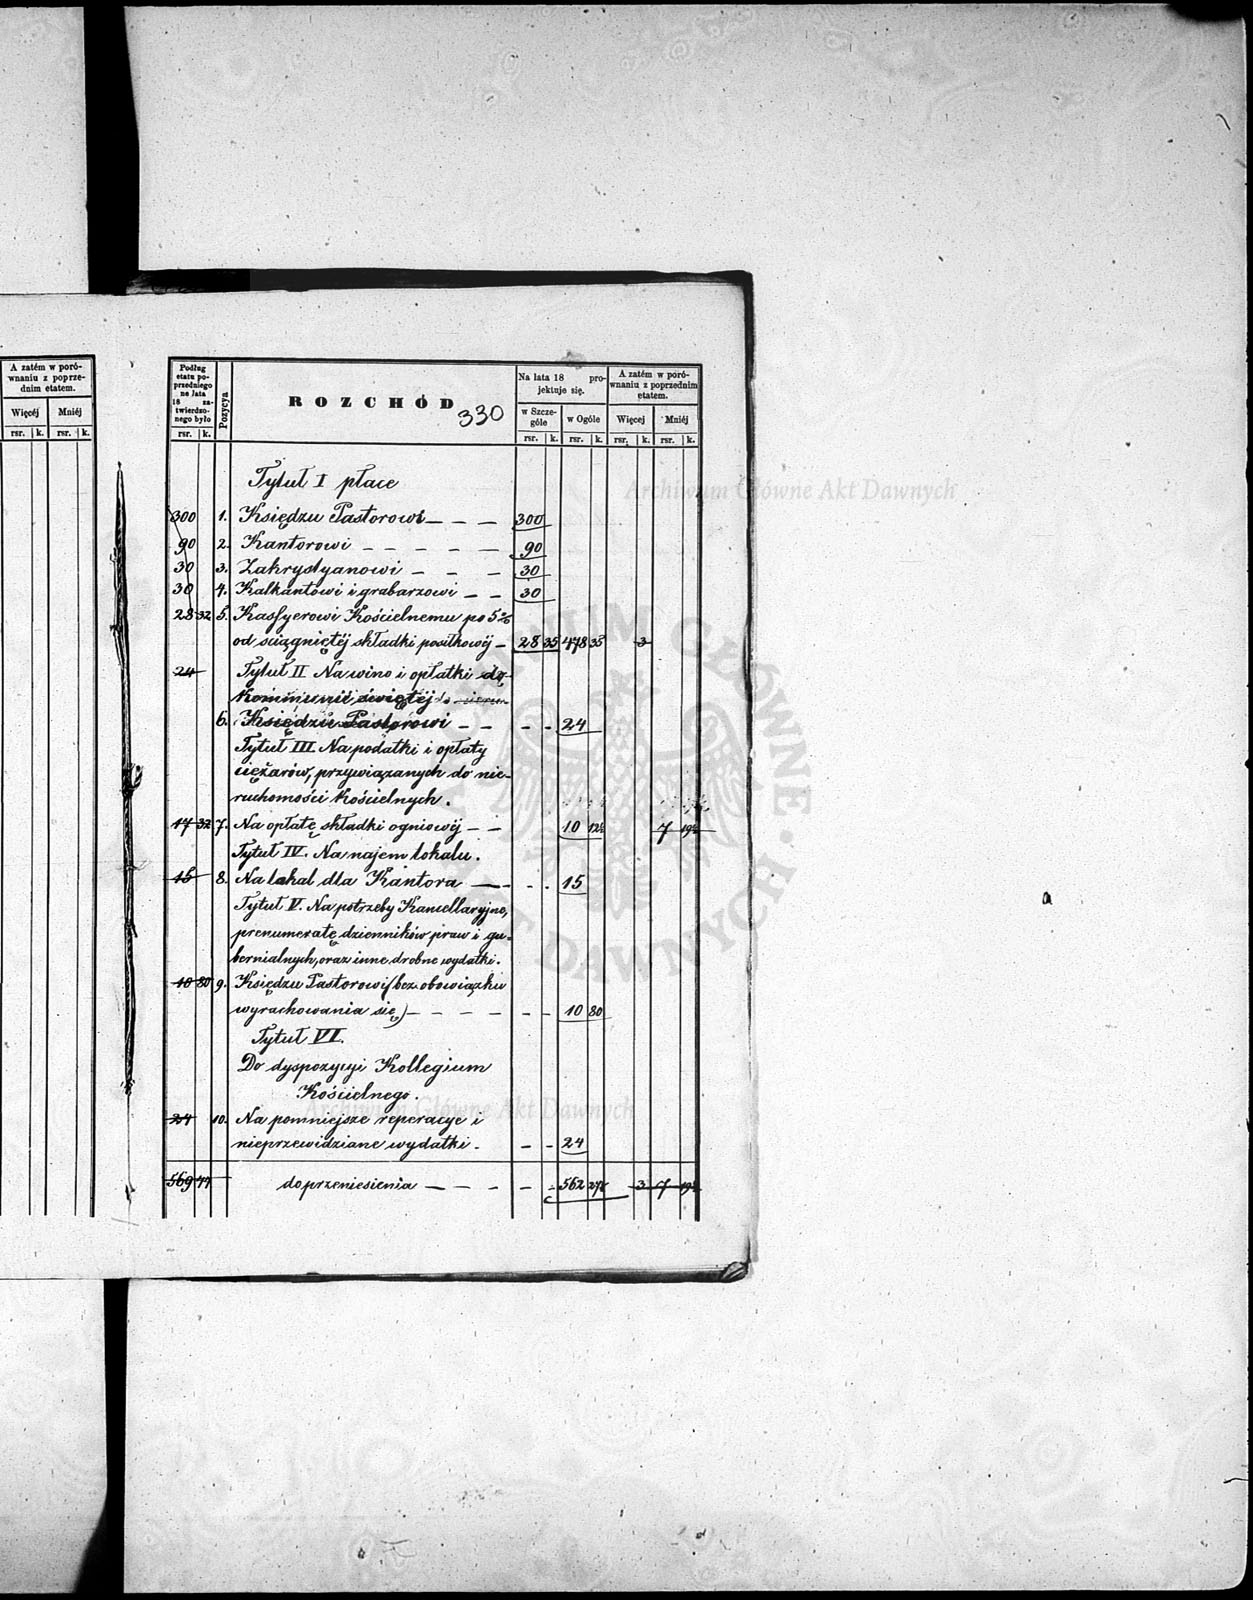 A zatém w poró-
wnaniu z poprze-
dnim etatem.
Więcéj Mniéj
rsr. k. rsr. k.
Podług
etatu po-
przedniego
na lata
18 za-
twierdzo-
nego było
rsr. k.
Pozycya
ROZCHÓD
330
Na lata 18 pro-
jektuje się.
w Szcze-
góle
w Ogóle
rsr. k. rsr. k.
A zatém w poró-
wnaniu z poprzednim
etatem.
Więcej Mniéj
rsr. k. rsr. k.
Tytuł I płace
300 1. Księdzu Pastorowi — — — 300
90 2. Kantorowi — — — — — 90
30 3. Zakrystyanowi — — — 30
30 4. Kalkantowi i grabarzowi — — 30
28 32 5. Kassyerowi Kościelnemu po 5%
od ściągniętéj składki posiłkowéj — 28 35 478 35 3
24 Tytuł II Na wino i opłatki do
Kommunii świętéj
6. Księdzu Pastorowi — — - - 24
Tytuł III Na podatki i opłaty
ciężarów, przywiązanych do nie-
ruchomości Kościelnych.
17 32 7. Na opłatę składki ogniowéj — — 10 12½ 7 19½
Tytuł IV. Na najem lokalu.
15 8. Na lokal dla Kantora — - - 15
Tytuł V. Na potrzeby Kancellaryjne,
prenumeratę dzienników praw i gu-
bernialnych, oraz inne drobne wydatki.
10 80 9. Księdzu Pastorowi (bez obowiązku
wyrachowania się) — — — — — — 10 80
Tytuł VI.
Do dyspozycyi Kollegium
Kościelnego.
24 10. Na pomniejsze reperacye i
nieprzewidziane wydatki - - - 24
569 44 do przeniesienia — — — — - 562 27½ 3 7 19½
Archiwum Główne Akt Dawnych
Archiwum Główne Akt Dawnych